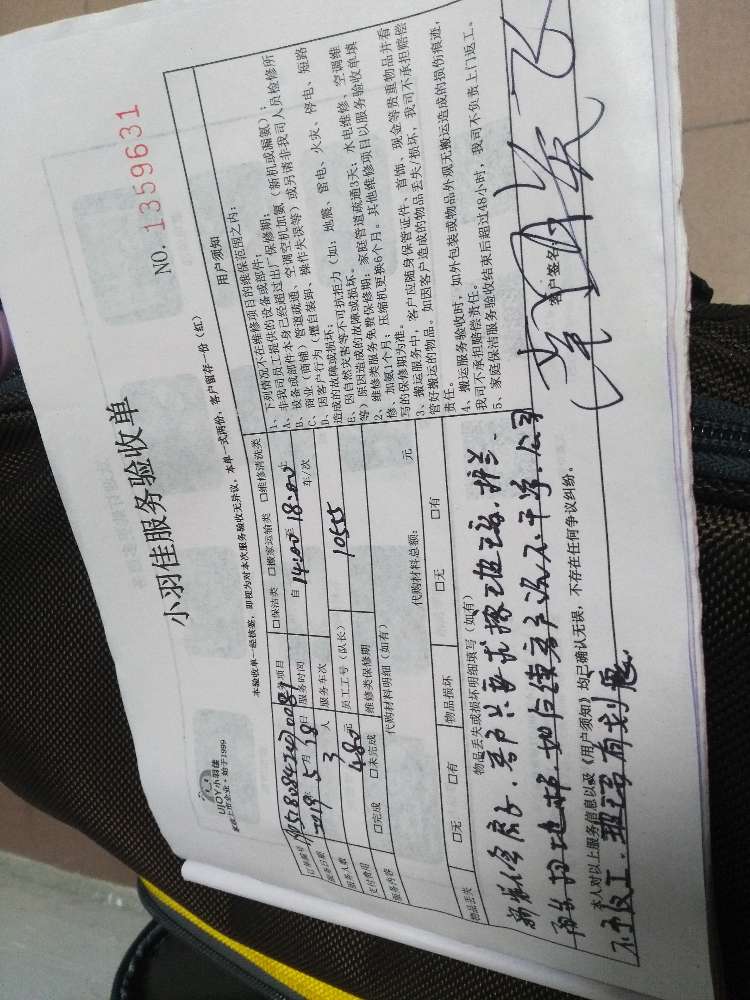 UJOY小羽佳
家政上市企业·始于1999
小羽佳服务验收单
NO. 1359631
本验收单一经核签,即视为对本次服务验收无异议,本单一式两份,客户留存一份(红)
订单编号
服务项目 □保洁类 □搬家运输类 □维修清洗类
服务日期 2019年5月18日 服务时间 自14:00至18:00
服务人数 3人 服务车次 车/次
支付费用 480元 员工工号(队长) 10555
服务内容 □完成 □未完成 维修类保修期
代购材料明细(如有)
代购材料总额: 元
物品丢失 □无 □有 物品损坏 □无 □有
物品丢失或损坏明细填写(如有)
用户须知
1、下列情况不在维修项目的维保范围之内:
A、非我司员工提供的设备或部件;
B、设备或部件本身已经超过出厂保修期;
C、商业(商铺)管道疏通、空调空机加氨(新机或漏氨);
D、因客户行为(擅自装卸、操作失误等)或另请非我司人员检修所造成的故障或损坏;
E、因自然灾害等不可抗拒力(如:地震、雷电、火灾、停电、短路等)原因造成的故障或损坏。
2、维修类服务免费保修期:家庭管道疏通3天;水电维修、空调维修、加氨1个月;压缩机更换6个月。其他维修项目以服务验收单填写的保修期为准。
3、搬运服务中,客户应随身保管证件、首饰、现金等贵重物品并看管好搬运的物品。如因客户造成的物品丢失/损坏,我司不承担赔偿责任。
4、搬运服务验收时,如外包装或物品外观无搬运造成的损伤痕迹,我司不承担赔偿责任。
5、家庭保洁服务验收结束后超过48小时,我司不负责上门返工。
客户只要求擦
本人对以上服务信息以及《用户须知》均已确认无误,不存在任何争议纠纷。
客户签名:
不予返工.
有划痕